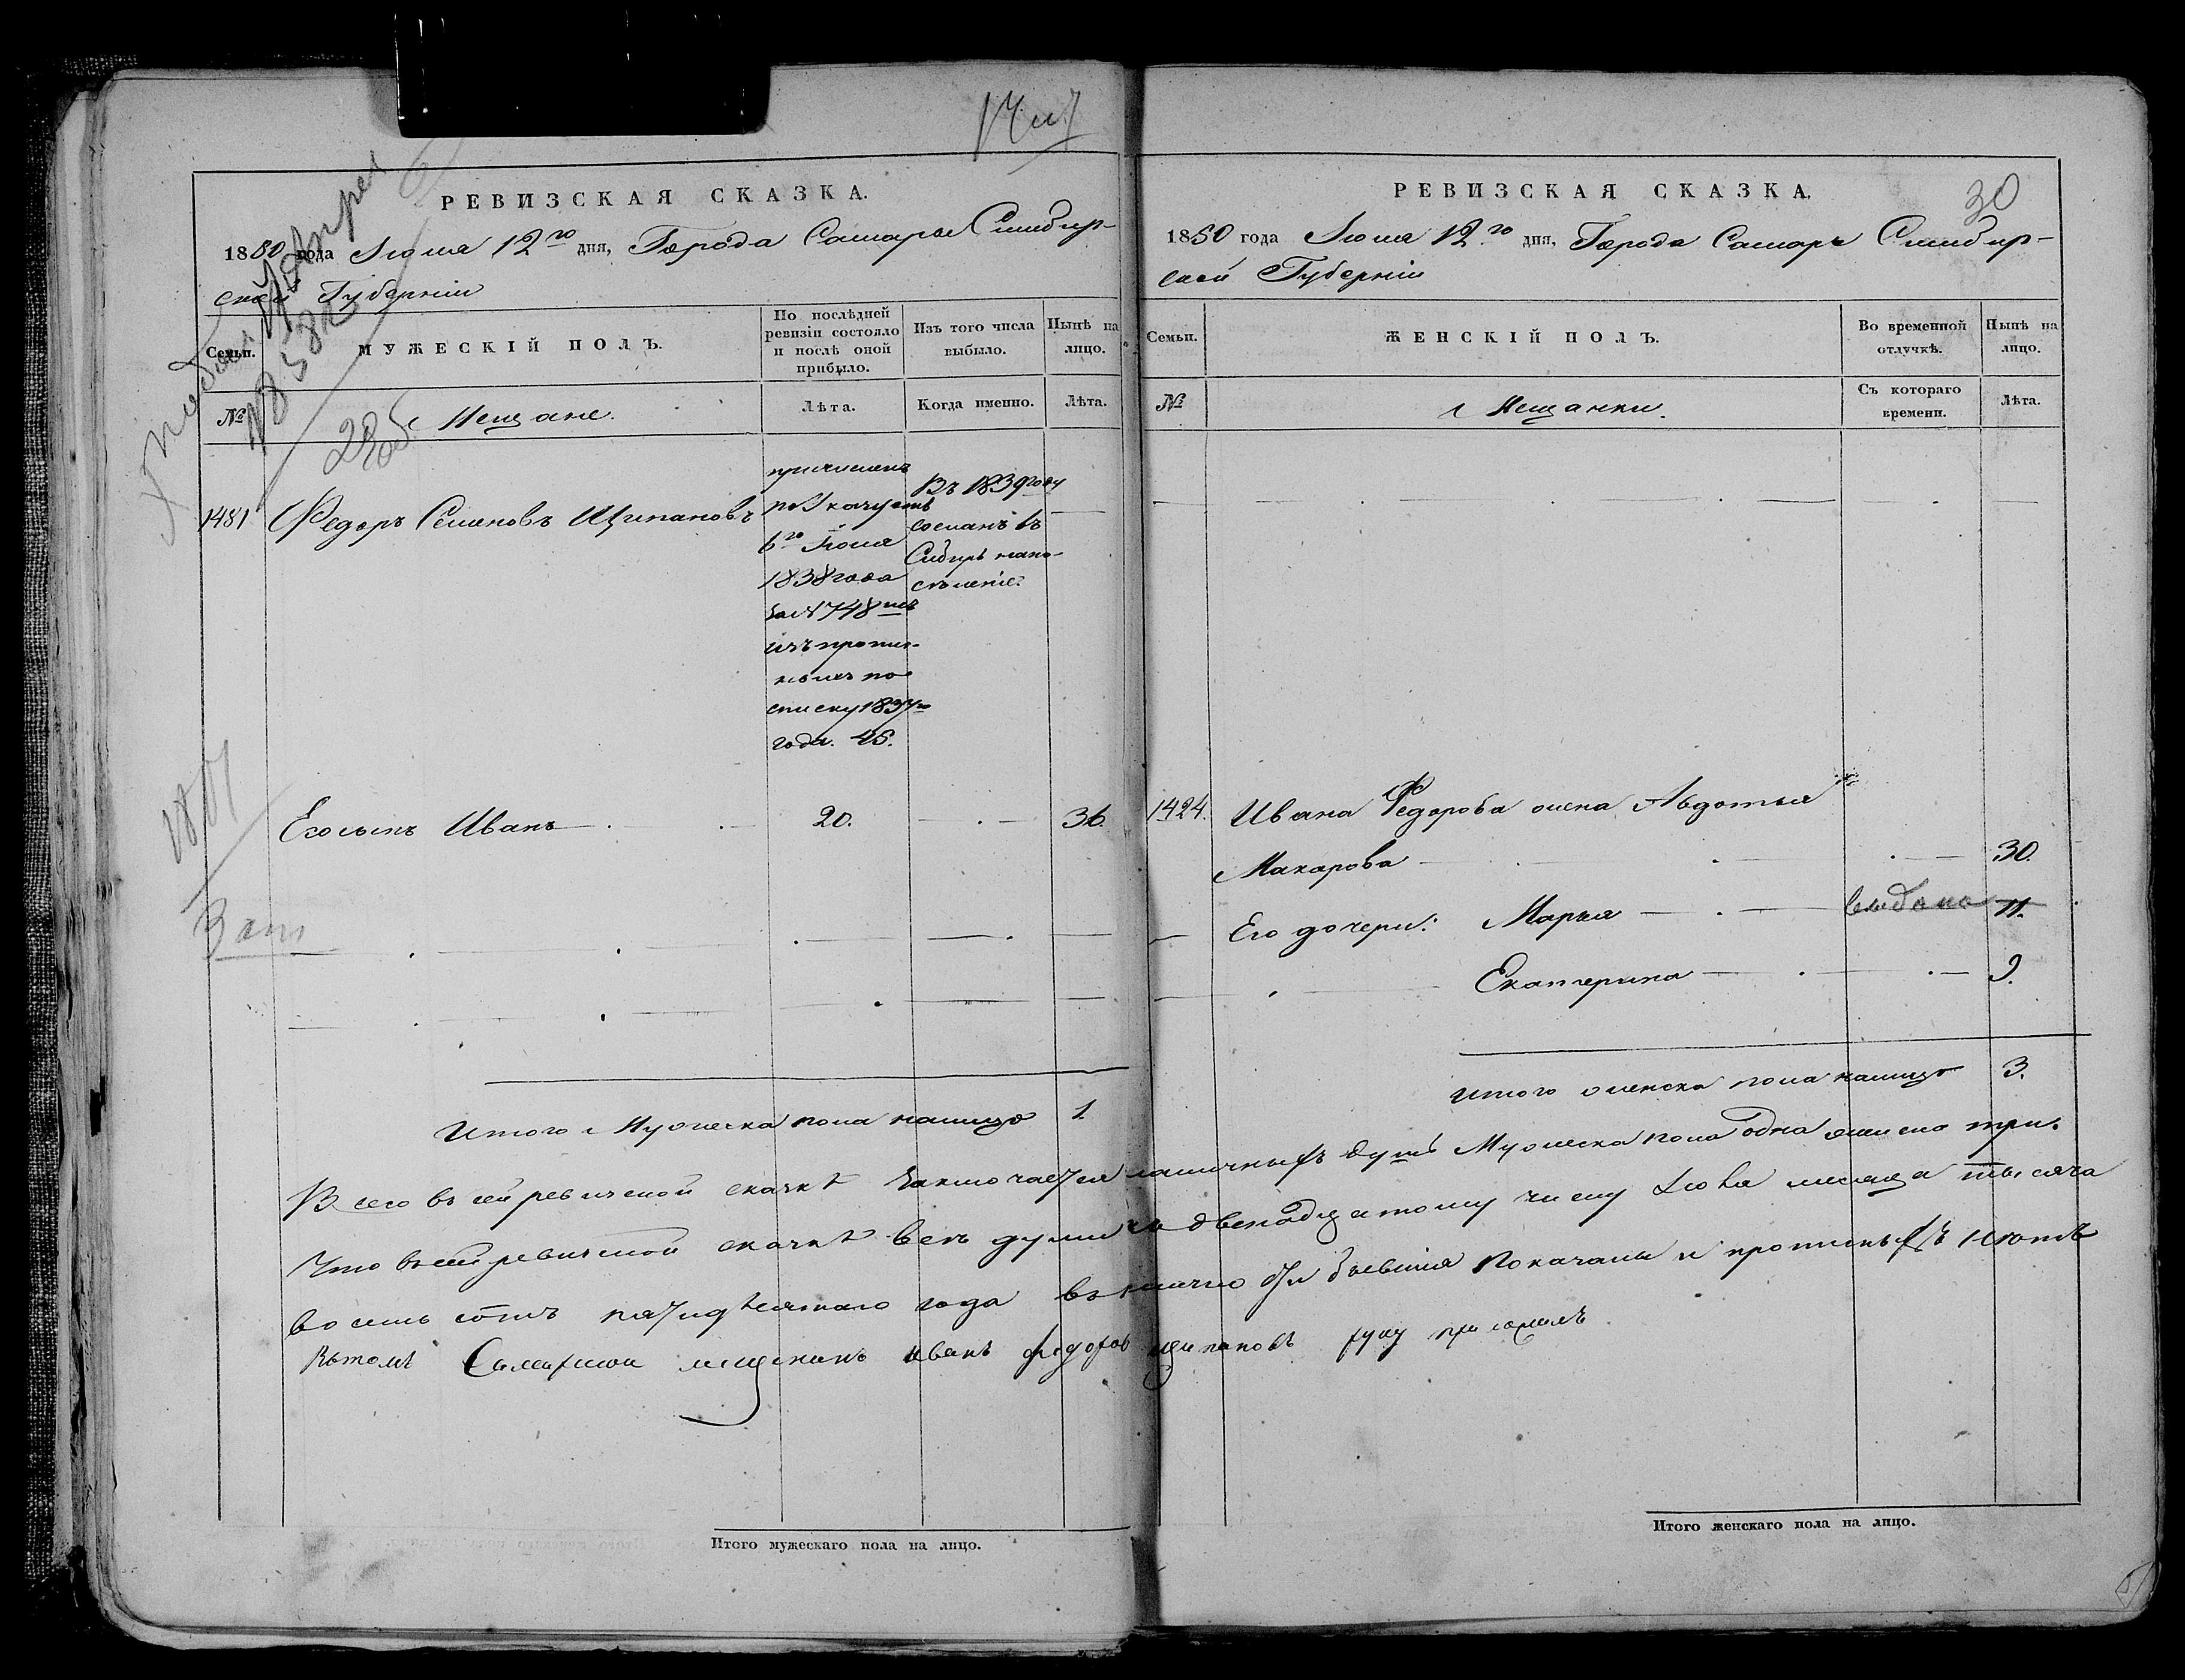 РЕВИЗСКАЯ СКАЗКА.
1850 года Іюля 12го дня, Города Самары Симбир-
ской Губерніи
Семьи.
МУЖЕСКІЙ ПОЛЪ.
По послѣдней
ревизіи состояло
и послѣ оной
прибыло.
Изъ того числа
выбыло.
Нынѣ на
лицо.
№
Мещане.
Лѣта.
Когда именно.
Лѣта.
1481
Федоръ Семеновъ Щипановъ
причисленъ
по Указу отъ
6го Іюля
1838 года
за № 748мъ
изъ пропис-
ныхъ по
списку 1834го
года. 45.
Въ 1839 году
сосланъ въ
Сибирь на по-
сѣленіе.
Его сынъ Иванъ
20.
36.
Итого Мужеска пола налицо 1.
РЕВИЗСКАЯ СКАЗКА.
30
1850 года Іюля 12го дня, Города Самары Симбир-
ской Губерніи
Семьи.
ЖЕНСКІЙ ПОЛЪ.
Во временной
отлучкѣ.
Нынѣ на
лицо.
№
Мещанки.
Съ котораго
времени.
Лѣта.
1424.
Ивана Федорова жена Авдотья
Макарова
30.
Его дочери: Марья выдана 11.
Екатерина 9.
Итого женска пола налицо 3.
Всего въ сей ревизской сказкѣ заключается наличныхъ душъ Мужеска пола одна женска три.
Что въ сей ревизской сказкѣ всѣ души къ двенадцатому числу Іюля месяца тысяча
восемь сотъ пятидесятаго года въ налично бывшія показаны и прописныхъ нѣтъ
въ томъ Самарской мещенинъ иванъ федоровъ щипановъ руку приложилъ
Итого мужескаго пола на лицо.
Итого женскаго пола на лицо.